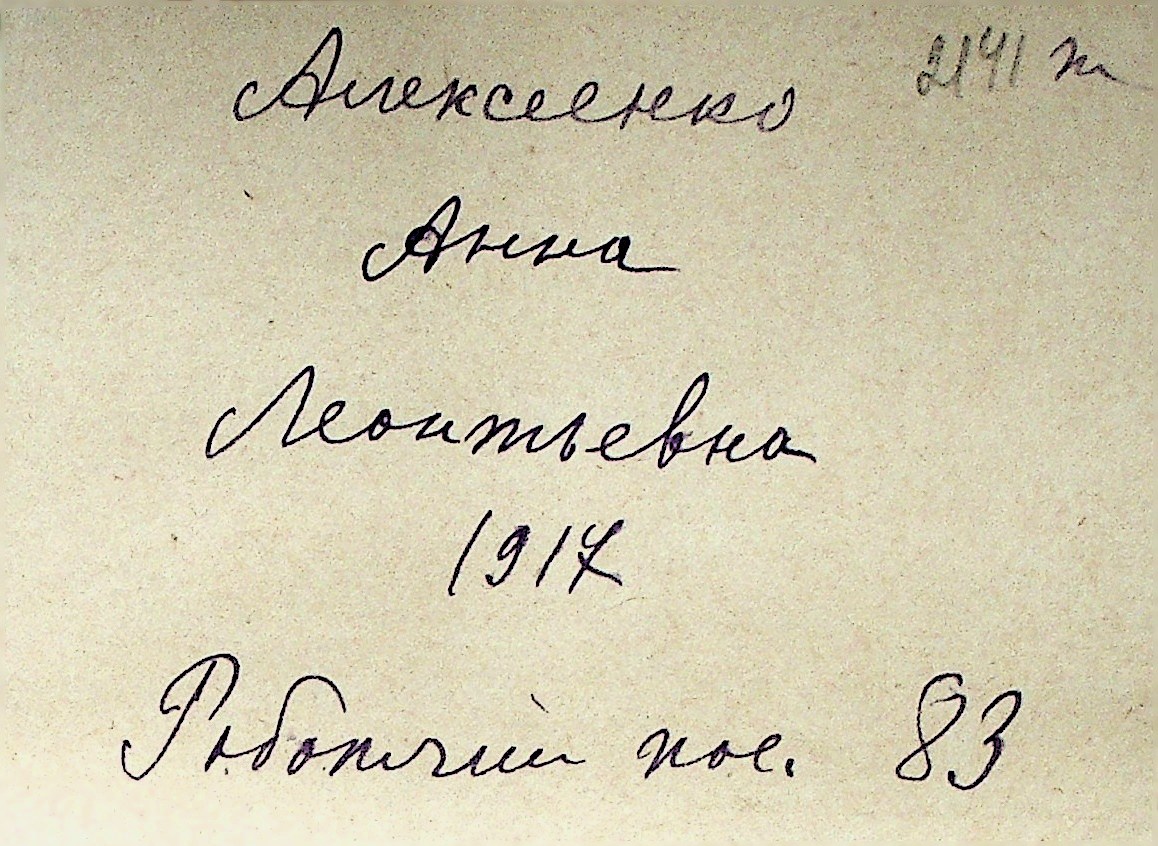 Алексеенко 2141 т
Анна
Леонтьевна
1917
Рабочий пос. 83